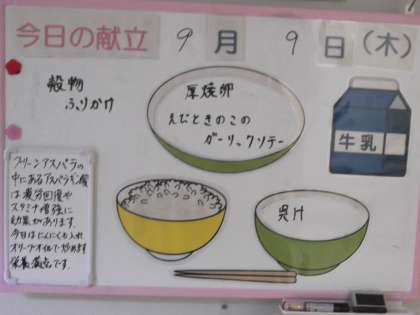 今日の献立 9月 9日(木)
穀物
ふりかけ
厚焼卵
えびときのこの
ガーリックソテー
牛乳
呉汁
グリーンアスパラの
中にあるアスパラギン酸
は疲労回復や
スタミナ増強に
効果があります。
今日はにんにくも入れ
オリーブオイルで炒めます
栄養満点です。